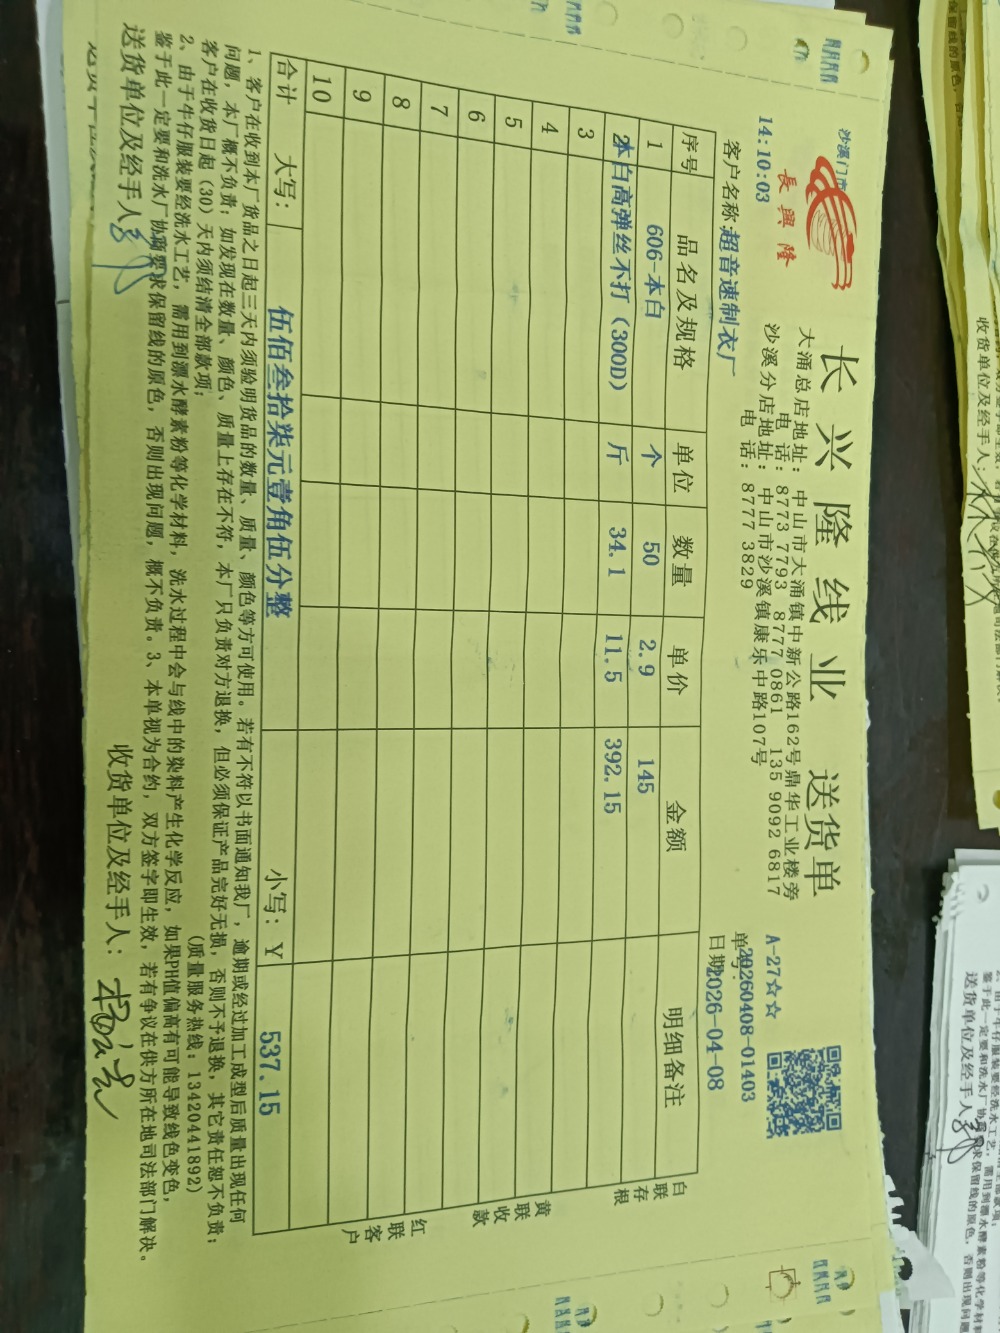 沙溪门市
14:10:03
長興隆
长兴隆线业 送货单
大涌总店地址:中山市大涌镇中新公路162号鼎华工业楼旁
电 话:8773 7793 8777 0861 135 9092 6817
沙溪分店地址:中山市沙溪镇康乐中路107号
电 话:8777 3829
A-27☆☆
单号:20260408-01403
日期:2026-04-08
客户名称:超音速制衣厂
序号 品名及规格 单位 数量 单价 金额 明细备注
1 606-本白 个 50 2.9 145
2 本白高弹丝不打(300D) 斤 34.1 11.5 392.15
3
4
5
6
7
8
9
10
合计 大写: 伍佰叁拾柒元壹角伍分整 小写:¥ 537.15
白联存根
黄联收款
红联客户
1、客户在收到本厂货品之日起三天内须验明货品的数量、质量、颜色等方可使用。若有不符以书面通知我厂,逾期或经过加工成型后质量出现任何
问题,本厂概不负责;如发现在数量、颜色、质量上存在不符,本厂只负责对方退换,但必须保证产品完好无损,否则不予退换,其它责任恕不负责;
客户在收货日起(30)天内须结清全部款项; (质量服务热线:13420441892)
2、由于牛仔服装要经洗水工艺,需用到漂水酵素粉等化学材料,洗水过程中会与线中的染料产生化学反应,如果PH值偏高有可能导致线色变色,
鉴于此一定要和洗水厂协商要求保留线的原色,否则出现问题,概不负责。3、本单视为合约,双方签字即生效,若有争议在供方所在地司法部门解决。
送货单位及经手人:
收货单位及经手人:
收货单位及经手人:
送货单位及经手人